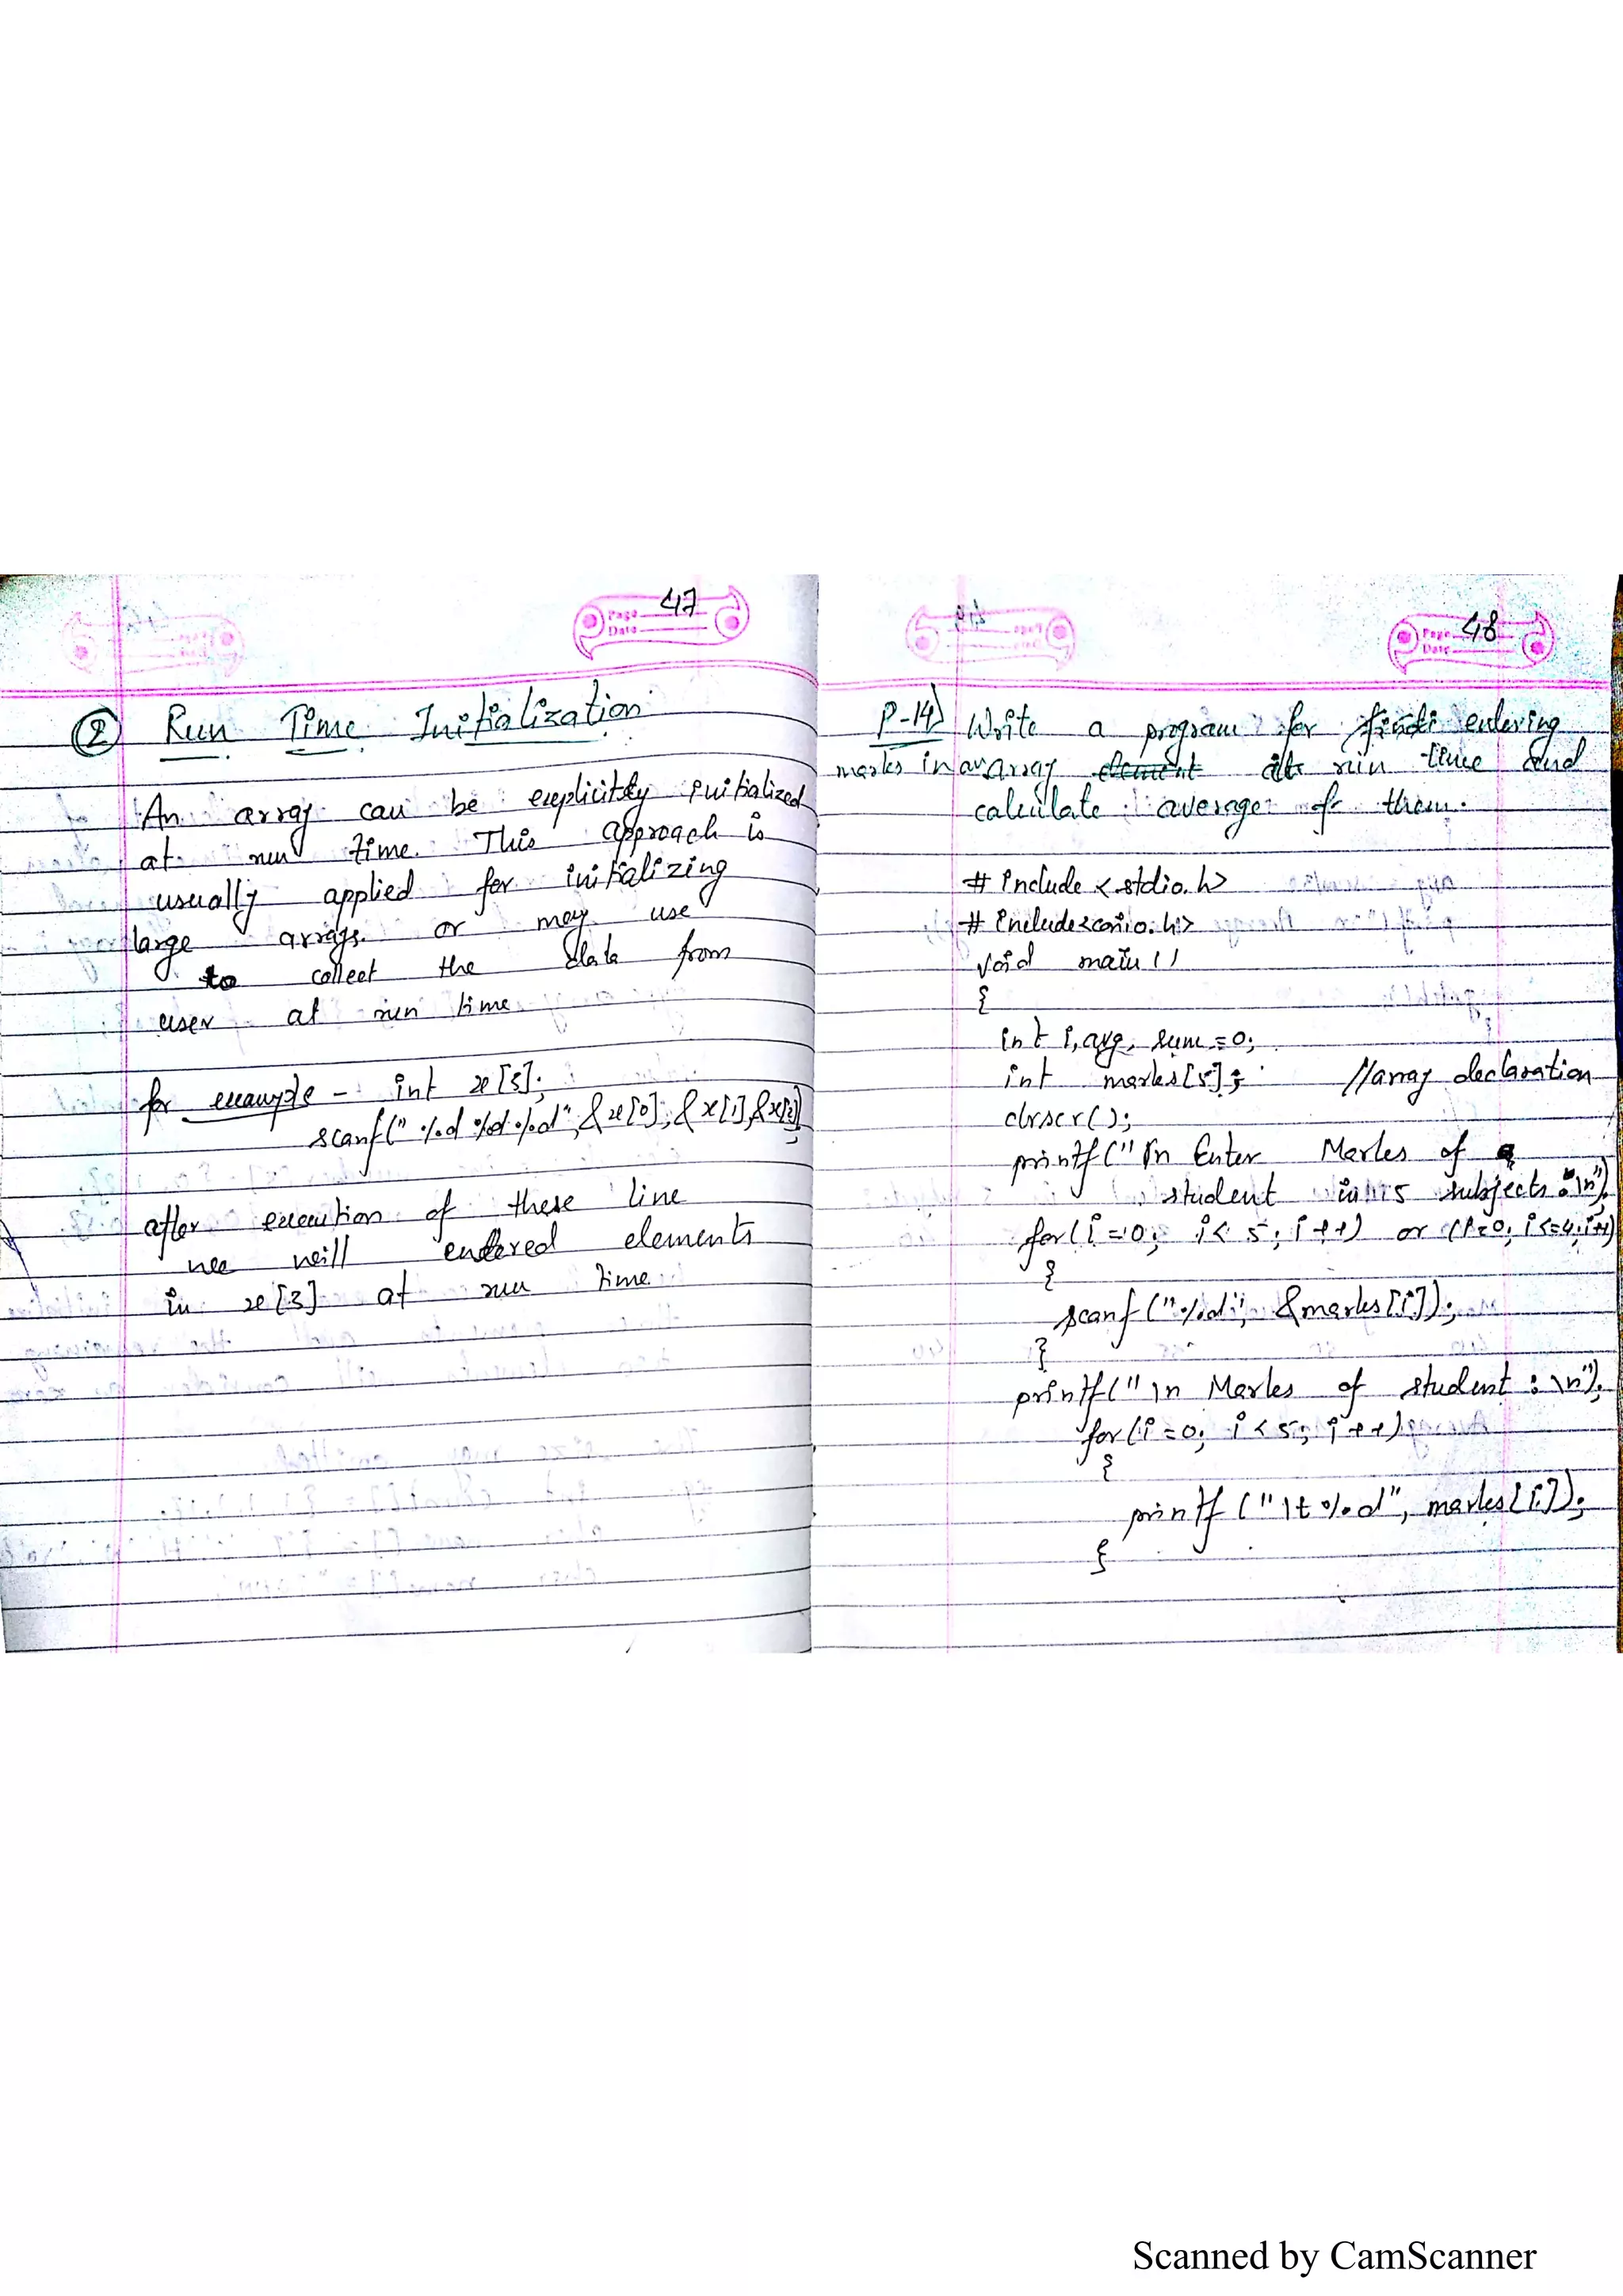 Page 47
Date
② Run Time Initialization
An array can be explicitly initialized
at run time. This approach is
usually applied for initializing
large arrays. or may use
to collect the data from
user at run time
for example - int x[3];
scanf("%d %d %d", &x[0], &x[1], &x[2]);
after execution of these line
we will entered elements
in x[3] at run time.
Page 48
Date
P-14) Write a program for entering
marks in an array at run time and
calculate average of them.
# include <stdio.h>
# include<conio.h>
void main()
{
int i, avg, sum=0;
int marks[5]; //array declaration
clrscr();
printf("\n Enter Marks of a
student in 5 subjects:\n");
for(i=0; i<5; i++) or (i=0; i<=4; i++)
{
scanf("%d", &marks[i]);
}
printf("\n Marks of student : \n");
for(i=0; i<5; i++)
{
printf("\t%d", marks[i]);
}
Scanned by CamScanner